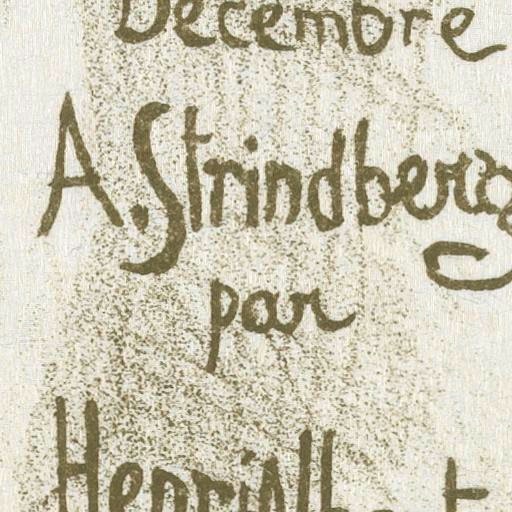 Décembre
A. Strindberg
par
Henri Albert